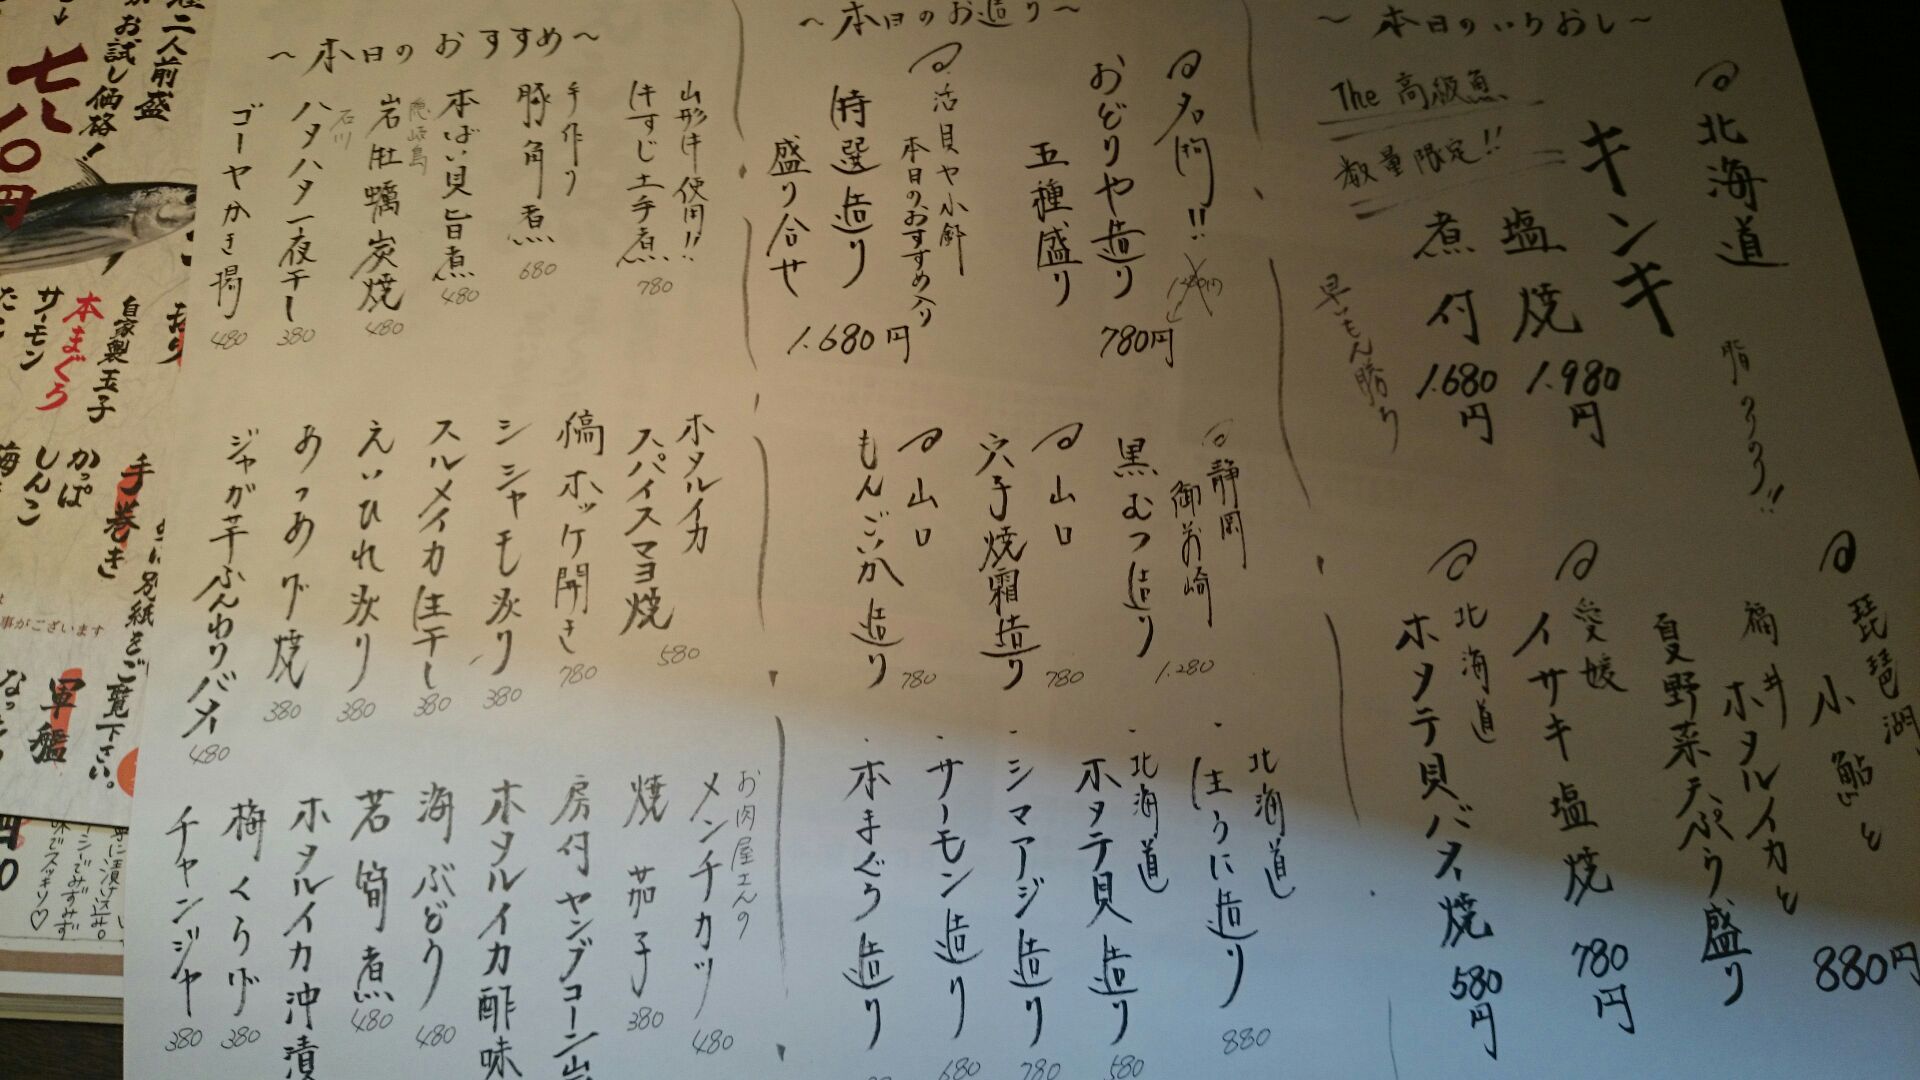 ~本日のいちおし~
北海道
キンキ
脂ノリノリ!!
塩焼
1.980円
煮付
1.680円
The 高級魚
数量限定!!
早いもん勝ち
琵琶湖
小鮎と
福井
ホタルイカと
夏野菜天ぷら盛り
880円
愛媛
イサキ塩焼
780円
北海道
ホタテ貝バター焼
580円
~本日のお造り~
名物!!
おどりや造り
五種盛り
780円
活貝や小鉢
本日のおすすめ入り
特選造り
盛り合せ
1.680円
静岡
御前崎
黒むつ造り
1.280
山口
穴子焼霜造り
780
山口
もんごいか造り
780
北海道
生うに造り
880
北海道
ホタテ貝造り
580
シマアジ造り
780
サーモン造り
680
本まぐろ造り
~本日のおすすめ~
山形牛使用!!
牛すじ土手煮
780
手作り
豚角煮
680
本ばい貝旨煮
480
隠岐島
岩牡蠣炭焼
480
石川
ハタハタ一夜干し
380
ゴーヤかき揚
480
ホタルイカ
スパイスマヨ焼
580
縞ホッケ開き
780
シシャモ炙り
380
スルメイカ生干し
380
えいひれ炙り
380
あつあげ焼
380
ジャガ芋ふんわりバター
480
お肉屋さんの
メンチカツ
480
焼茄子
380
房付ヤングコーン
ホタルイカ酢味
海ぶどう
480
若筍煮
480
ホタルイカ沖漬
梅くらげ
380
チャンジャ
380
二人前盛
お試し価格!
七八〇円
自家製玉子
本まぐろ
サーモン
手巻き
かっぱ
しんこ
別紙をご覧下さい。
事がございます
軍艦